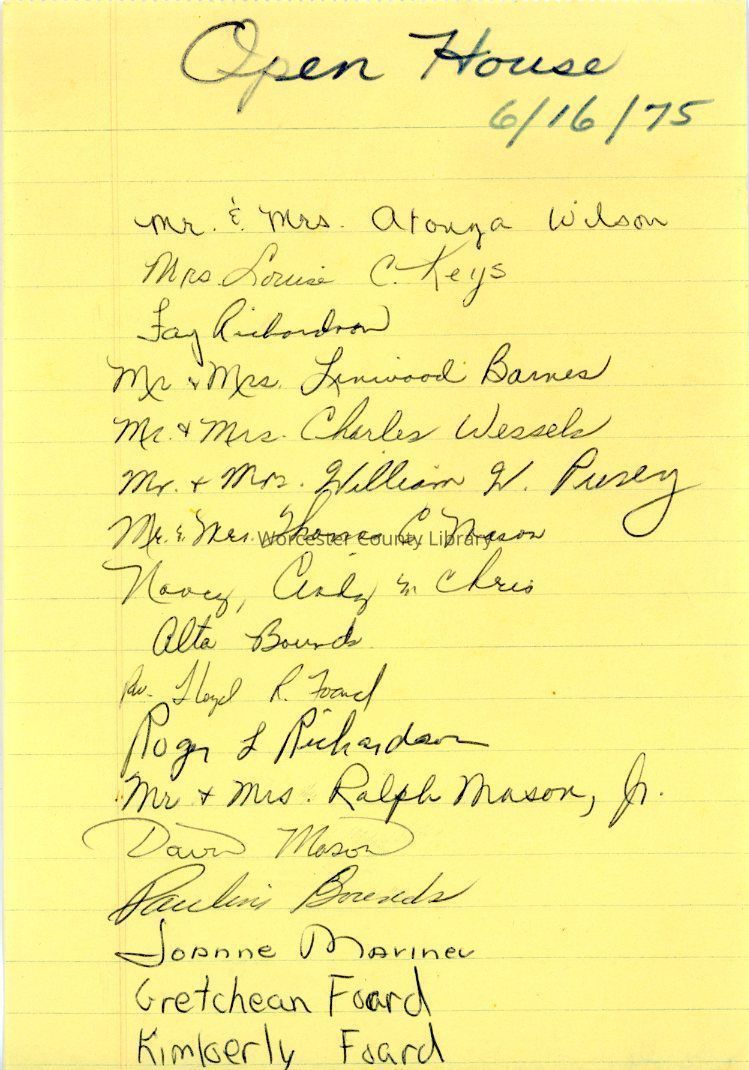 Open House
6/16/75
Mr. & Mrs. Atonza Wilson
Mrs. Louise C. Keys
Fay Richardson
Mr & Mrs. Linwood Barnes
Mr. & Mrs. Charles Wessels
Mr. + Mrs. William W. Pusey
Mr. & Mrs. Thomas C. Mason
Worcester County Library
Nancy, Cindy & Chris
Alta Bounds
Rev. Lloyd R. Foard
Roger L Richardson
Mr + Mrs. Ralph Mason, Jr.
Dawn Mason
Pauline Bounds
Joanne Mariner
Gretchean Foard
Kimberly Foard